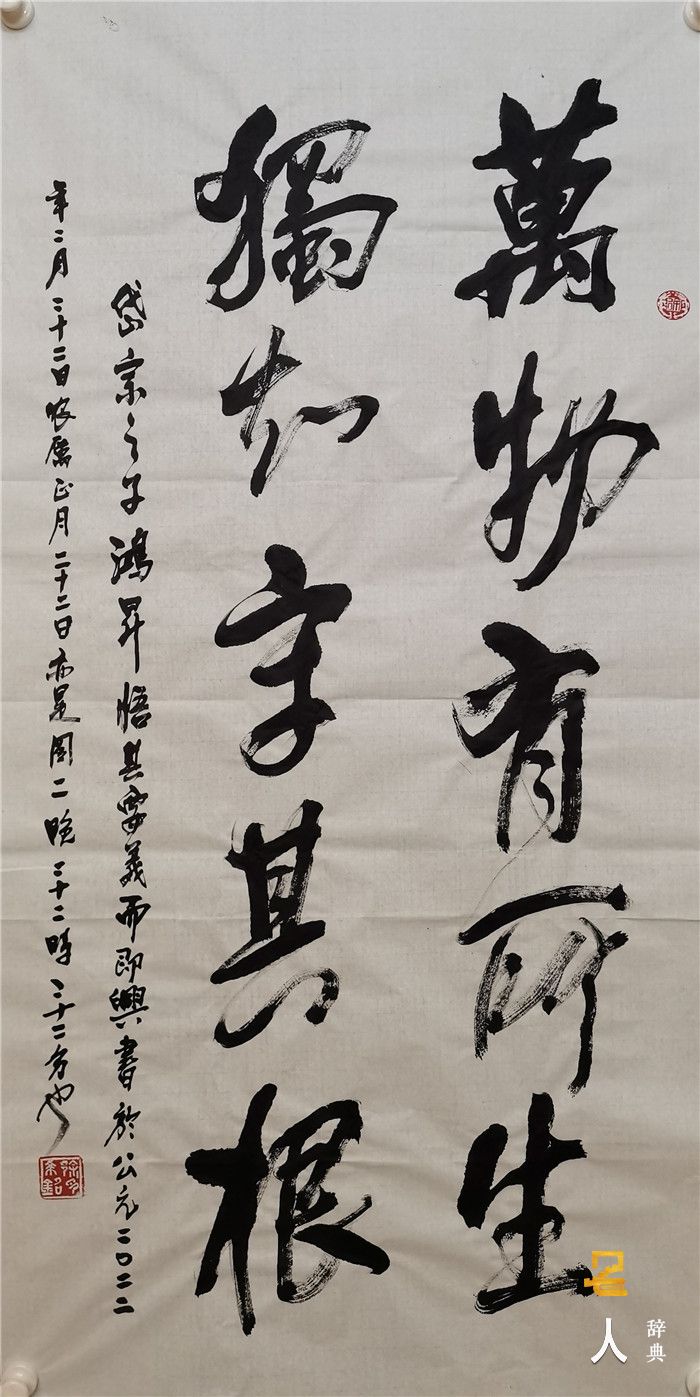 萬物有所生
獨知守其根
岱宗之子鴻昇悟其要義而即興書於公元二〇二二
年二月二十二日農曆正月二十二日亦是周二晚二十二時二十二分也
名人
辞典